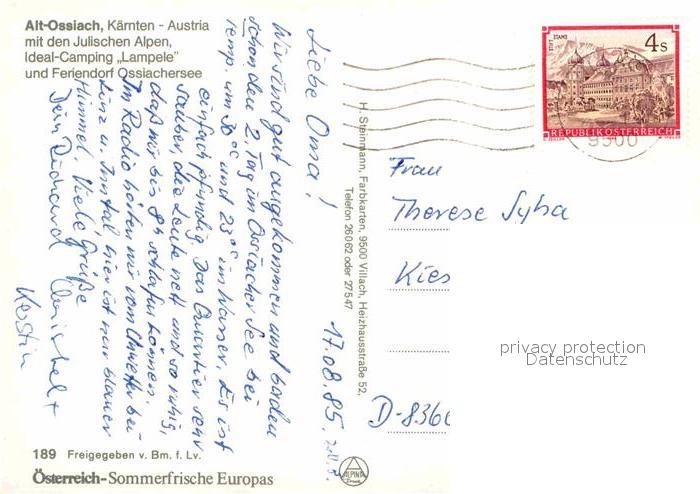 Alt-Ossiach, Kärnten - Austria
mit den Julischen Alpen,
Ideal-Camping „Lampele"
und Feriendorf Ossiachersee
Liebe Oma!
Wir sind gut angekommen und baden
schon den 2. Tag im Ossiacher See bei
Temp. um 30°C und 23°C im Wasser. Es ist
einfach pfundig. Das Quartier sehr
sauber, die Leute nett und so ruhig,
daß wir bis 8h schlafen können.
Im Radio hörten wir vom Unwetter bei
Linz u. Inntal, hier ist nur blauer
Himmel. Viele Grüße
Dein Richard Christel +
Kerstin
17.08.85.
H. Steinmann, Farbkarten, 9500 Villach, Heizhausstraße 52,
Telefon 26062 oder 27547
STIFT STAMS
4 S
REPUBLIK ÖSTERREICH
9500
Frau
Therese Syha
Kies
D-8366
privacy protection
Datenschutz
189 Freigegeben v. Bm. f. Lv.
Österreich-Sommerfrische Europas
ALPINA
Druck